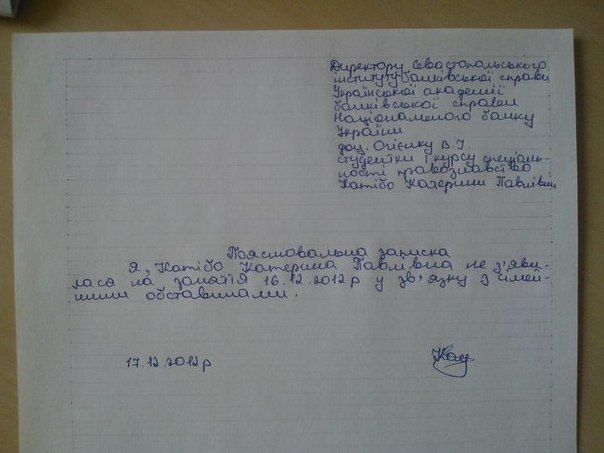 Директору Севастопольського
інституту банківської справи
Української академії
банківської справи
Національного банку
України
доц. Огієнку В.І.
студентки І курсу спеціаль-
ності правознавство
Катібо Катерини Павлівни
Пояснювальна записка
Я, Катібо Катерина Павлівна не з'яви-
лася на заняття 16.12.2012 р у зв'язку з сімей-
ними обставинами.
17.12.2012р